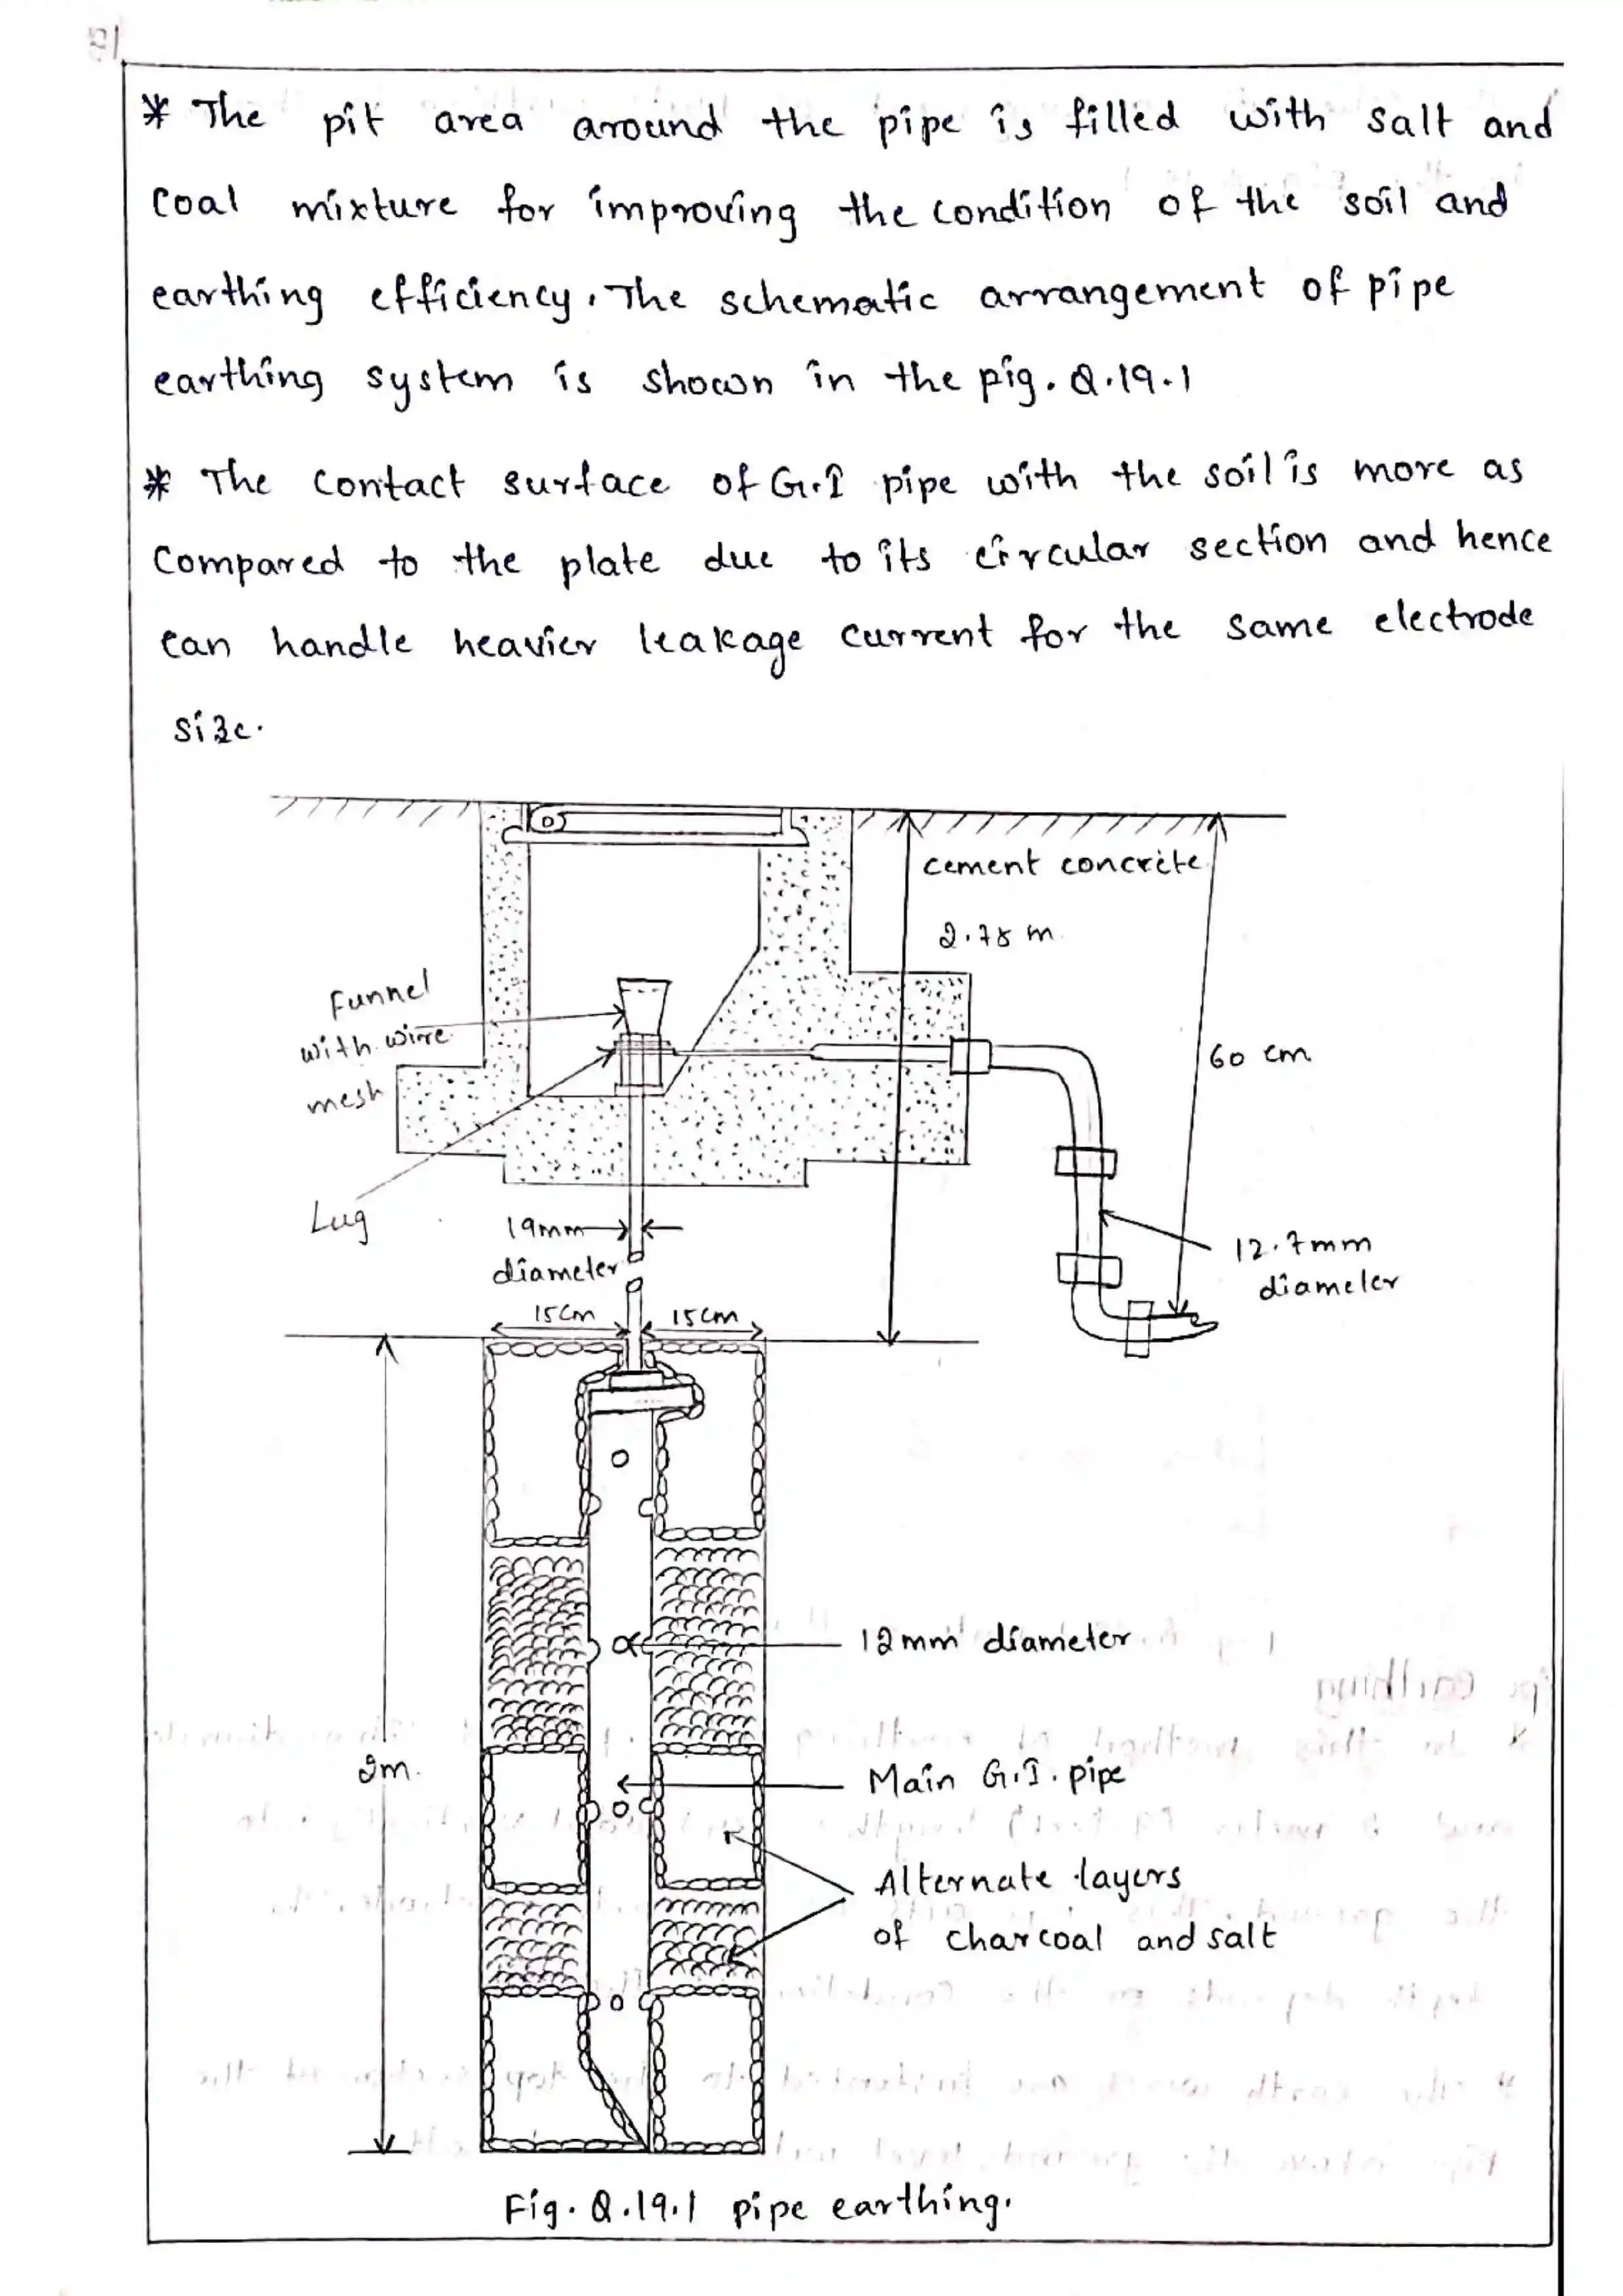 * The pit area around the pipe is filled with salt and
Coal mixture for improving the condition of the soil and
earthing efficiency. The schematic arrangement of pipe
earthing system is shown in the pig. Q.19.1
* The contact surface of G.I pipe with the soil is more as
Compared to the plate due to its circular section and hence
can handle heavier leakage current for the same electrode
size.
cement concrete
2.75 m
Funnel
with wire
mesh
60 cm
Lug
19mm
diameter
12.7mm
diameter
15cm 15cm
12mm diameter
2m.
Main G.I. pipe
Alternate layers
of charcoal and salt
Fig. Q.19.1 pipe earthing.